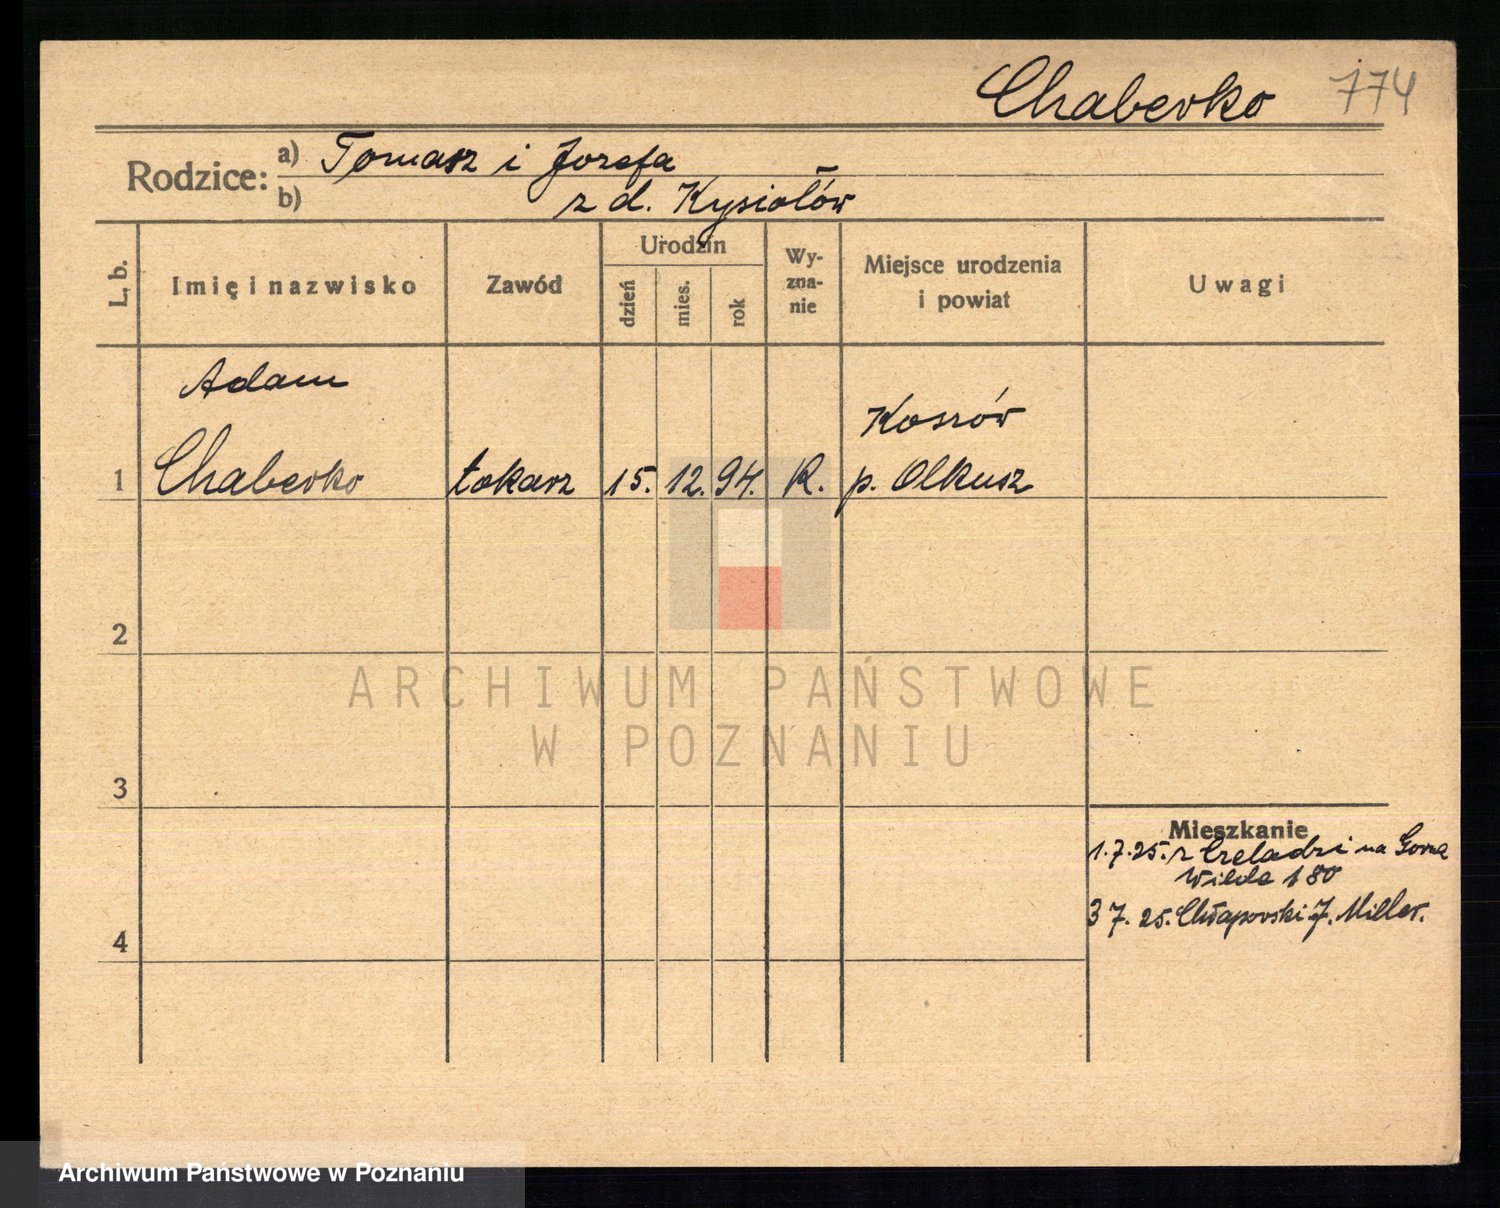 Chaberko 774
Rodzice: a) Tomasz i Jozefa
b) z d. Kysiołów
L. b.
Imię i nazwisko
Zawód
Urodzin
dzień
mies.
rok
Wy-
zna-
nie
Miejsce urodzenia
i powiat
Uwagi
Adam
Koszów
1 Chaberko tokarz 15. 12. 94. R. p. Olkusz
2
ARCHIWUM PAŃSTWOWE
W POZNANIU
3
Mieszkanie
1.7.25. z Czeladzi na Gorna
Wilda 180
3 7. 25. Chłapowski J. Miller.
4
Archiwum Państwowe w Poznaniu